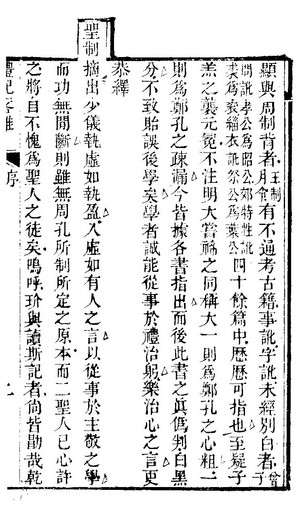 顯與周制背者王制月令有不通考古籍事訛字訛未經別白者曾子
問訛孝公為昭公郊特牲訛
裘為素緇衣訛祭公為葉公
四十餘篇中歷歷可指也至疑子
羔之襲元冕不注明大嘗禘之同稱大一則為鄭孔之心粗一
則為鄭孔之疎漏今皆據各書指出而後此書之真僞判白黑
分不致貽誤後學矣學者誠能從事於禮治躬樂治心之言更
恭繹
聖制摘出少儀執虛如執盈入虛如有人之言以從事於主敬之學
而功無間斷則雖無周孔所制所定之原本而二聖人已心許
之將自不愧為聖人之徒矣嗚呼玠與讀斯記者尚皆勖哉乾
禮記
序